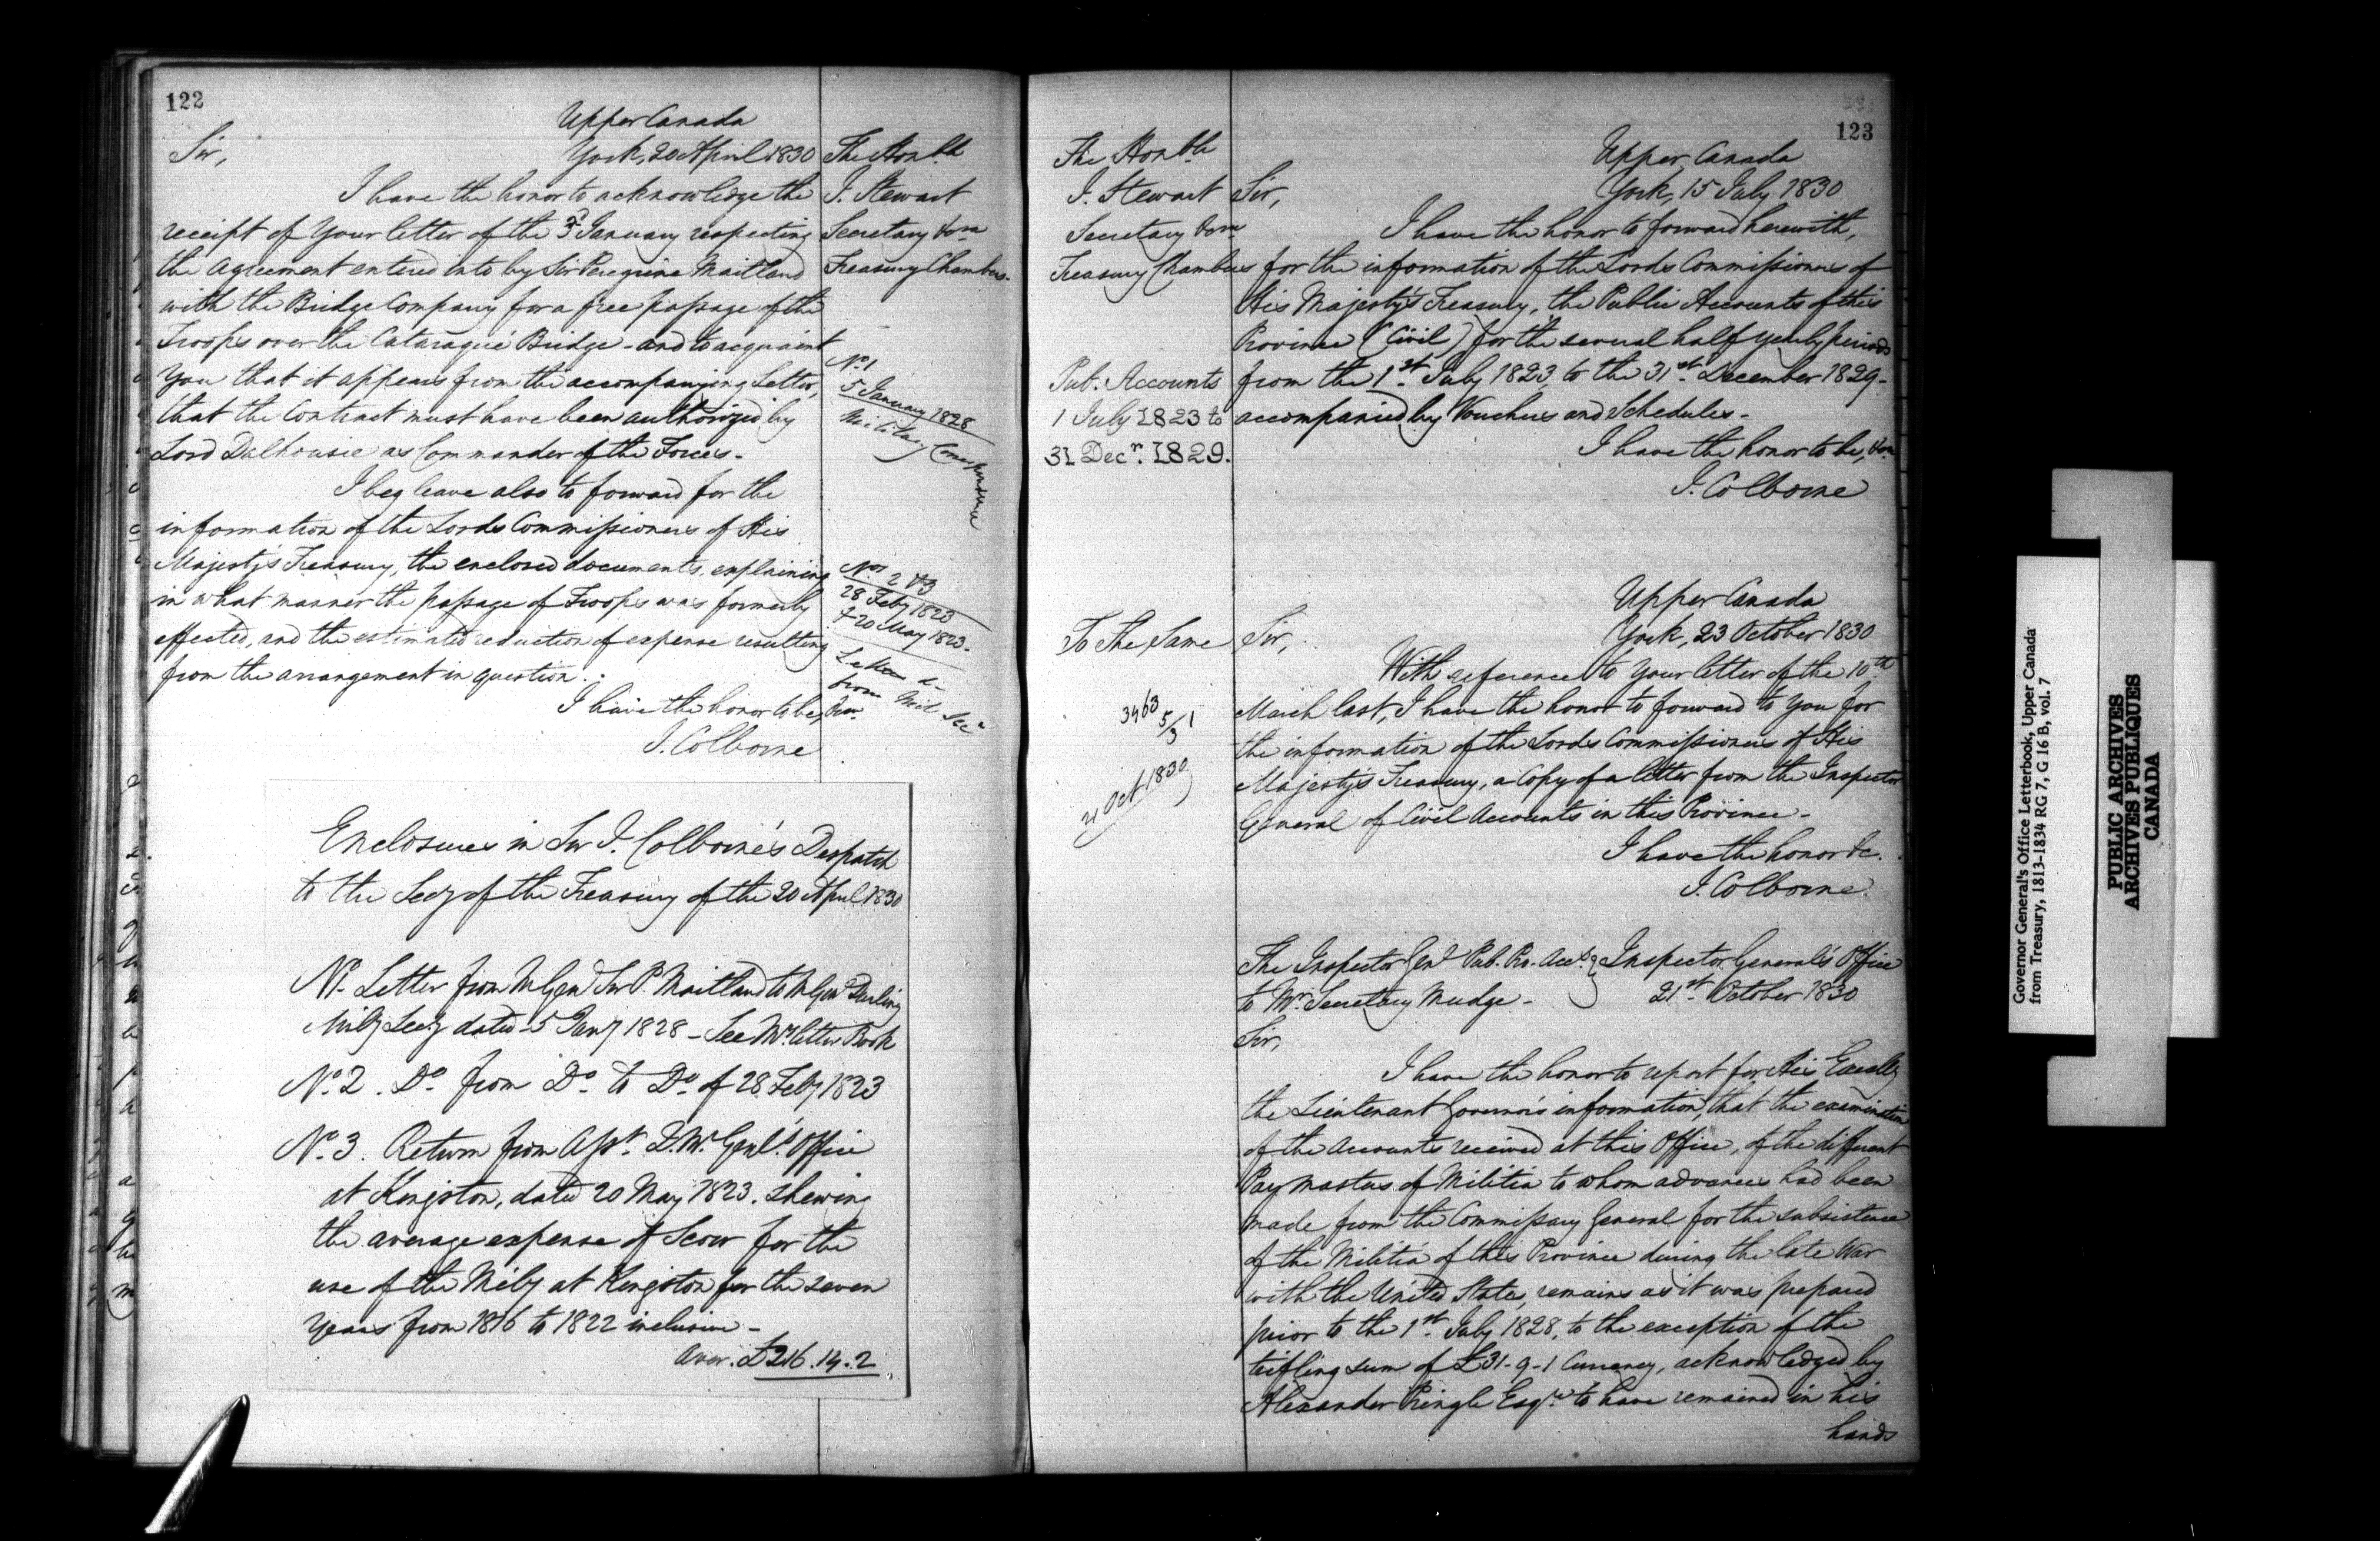 122
Upper Canada
York, 20 April 1830
Sir,
I have the honor to acknowledge the
receipt of Your letter of the January respecting
the Agreement entered into by Sir Peregrine Maitland
with the Bridge Company for a free passage of the
Troops over the Cataraqui Bridge - and to acquaint
You that it appears from the accompanying Letter,
that the Contract must have been authorized by
Lord Dalhousie as Commander of the Forces -
I beg leave also to forward for the
information of the Lords Commissioners of His
Majesty's Treasury, the enclosed documents, explaining
in what manner the passage of Troops was formerly
effected, and the estimated reduction of expense resulting
from the arrangement in question.
I have the honor to be, &ca
J. Colborne
The Honble
J. Stewart
Secretary &ca
Treasury Chambers.
No. 1
5 January 1828
Military Correspondence
Nos 2 & 3
28 Feby 1823
& 20 May 1823.
Letters
from Mil Sec
Enclosures in Sir J. Colborne's Despatch
to the Secy of the Treasury of the 20 April 1830
No. 1. Letter from M Genl Sir P. Maitland to M Genl Darling
Mily Secy dated 5 Jany 1828 - See My letter Book
No. 2. Do from Do to Do of 28 Feby 1823
No. 3. Return from Asst. Q.M. Genl's Office
at Kingston, dated 20 May 1823. shewing
the average expense of Scow for the
use of the Mily at Kingston for the seven
Years from 1816 to 1822 inclusive -
Aver. £216.14.2
123
The Honble
J. Stewart
Secretary &ca
Treasury Chambers
Upper Canada
York, 15 July 1830
Sir,
I have the honor to forward herewith,
for the information of the Lords Commissioners of
His Majesty's Treasury, the Public Accounts of this
Province (Civil) for the several half yearly periods
from the 1st July 1823, to the 31st December 1829 -
accompanied by Vouchers and Schedules -
I have the honor to be, &ca
J. Colborne
Pub. Accounts
1 July 1823 to
31 Decr. 1829.
Upper Canada
York, 23 October 1830
To The Same
Sir,
With reference to Your letter of the 10th
March last, I have the honor to forward to You for
the information of the Lords Commissioners of His
Majesty's Treasury, a Copy of a letter from the Inspector
General of Civil Accounts in this Province -
I have the honor &c.
J. Colborne
3463 5/3 1
21 Oct 1830
The Inspector Genl Pub. Pro. Accts
to Mr Secretary Mudge -
Inspector General's Office
21st October 1830
Sir,
I have the honor to report for His Excelly
the Lieutenant Governor's information, that the examination
of the Accounts received at this Office, of the different
Pay masters of Militia to whom advances had been
made from the Commissary General for the subsistence
of the Militia of this Province during the late War
with the United States, remains as it was prepared
prior to the 1st July 1828, to the exception of the
trifling sum of £31-9-1 Currency, acknowledged by
Alexander Pringle Esqre to have remained in his
hands
Governor General's Office Letterbook, Upper Canada
from Treasury, 1813-1834 RG 7, G 16 B, vol. 7
PUBLIC ARCHIVES
ARCHIVES PUBLIQUES
CANADA